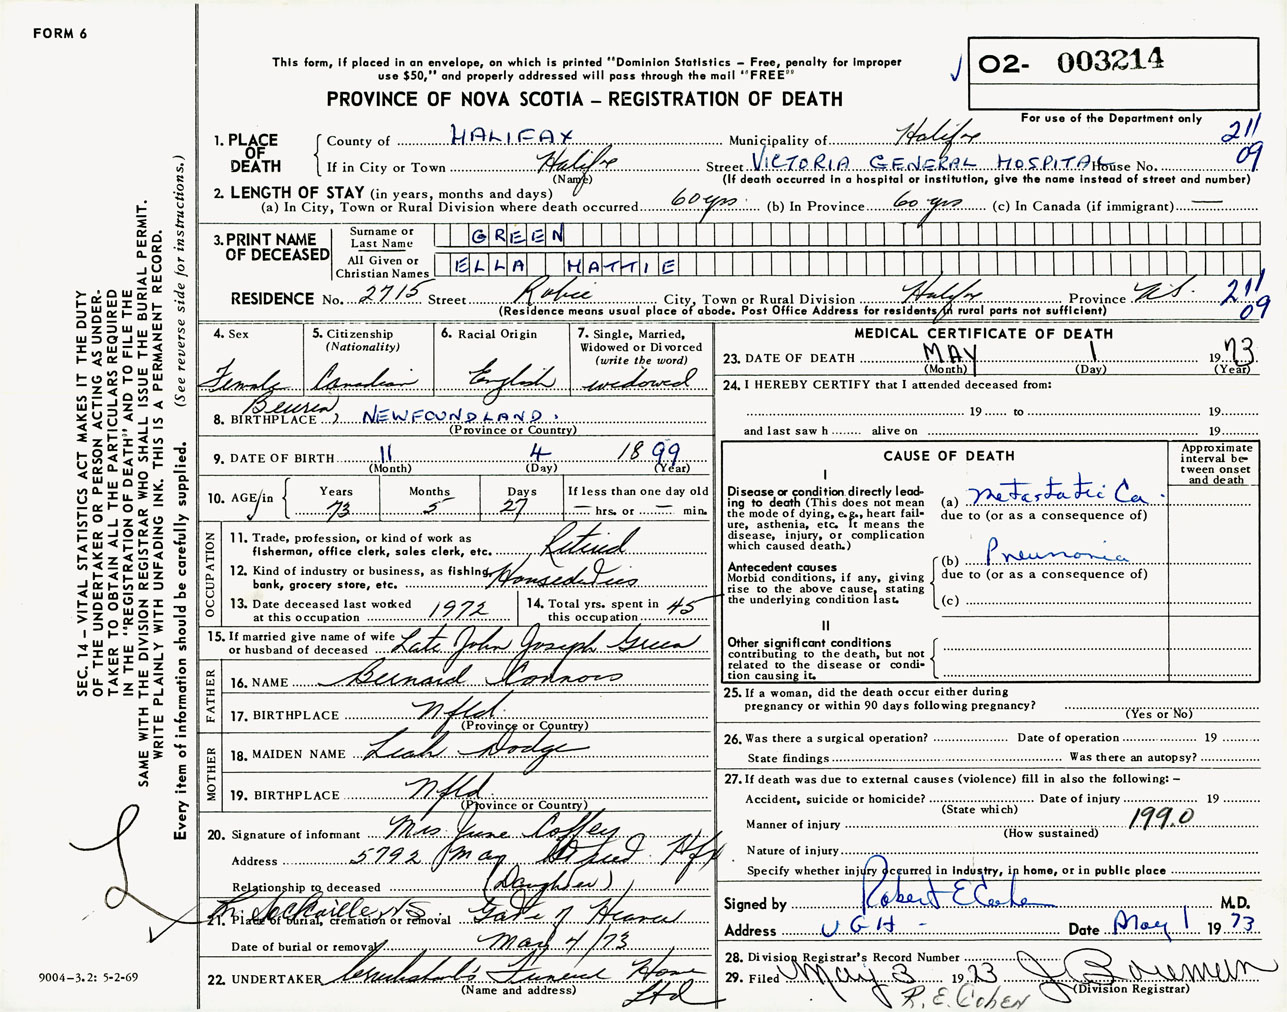 FORM 6
This form, if placed in an envelope, on which is printed "Dominion Statistics – Free, penalty for improper
use $50," and properly addressed will pass through the mail "FREE"
PROVINCE OF NOVA SCOTIA – REGISTRATION OF DEATH
02- 003214
For use of the Department only
1. PLACE OF DEATH
County of HALIFAX Municipality of Halifax 211
If in City or Town Halifax Street VICTORIA GENERAL HOSPITAL House No. 09
(Name) (If death occurred in a hospital or institution, give the name instead of street and number)
2. LENGTH OF STAY (in years, months and days)
(a) In City, Town or Rural Division where death occurred 60 yrs. (b) In Province 60 yrs (c) In Canada (if immigrant) —
3. PRINT NAME OF DECEASED
Surname or Last Name GREEN
All Given or Christian Names ELLA HATTIE
RESIDENCE No. 2715 Street Robie City, Town or Rural Division Halifax Province N.S. 211
(Residence means usual place of abode. Post Office Address for residents in rural parts not sufficient) 09
4. Sex
Female
5. Citizenship
(Nationality)
Canadian
6. Racial Origin
English
7. Single, Married,
Widowed or Divorced
(write the word)
widowed
8. BIRTHPLACE NEWFOUNDLAND.
(Province or Country)
9. DATE OF BIRTH 11 4 1899
(Month) (Day) (Year)
10. AGE/in Years 73 Months 5 Days 27 If less than one day old
— hrs. or — min.
OCCUPATION
11. Trade, profession, or kind of work as
fisherman, office clerk, sales clerk, etc. Retired
12. Kind of industry or business, as fishing,
bank, grocery store, etc.
13. Date deceased last worked
at this occupation 1972
14. Total yrs. spent in
this occupation 45
15. If married give name of wife
or husband of deceased Late John Joseph Green
FATHER
16. NAME Bernard Connors
17. BIRTHPLACE Nfld.
(Province or Country)
MOTHER
18. MAIDEN NAME Leah Dodge
19. BIRTHPLACE Nfld.
(Province or Country)
20. Signature of informant Mrs June Coffey
Address 5792 May Street Hfx
Relationship to deceased (Daughter)
Sackville NS
21. Place of burial, cremation or removal Gate of Heaven
Date of burial or removal May 4/73
22. UNDERTAKER Cruikshank's Funeral Home
(Name and address) Ltd
MEDICAL CERTIFICATE OF DEATH
23. DATE OF DEATH MAY 1 1973
(Month) (Day) (Year)
24. I HEREBY CERTIFY that I attended deceased from:
19 to 19
and last saw h alive on 19
CAUSE OF DEATH
Approximate
interval be-
tween onset
and death
I
Disease or condition directly lead-
ing to death (This does not mean
the mode of dying, e.g., heart fail-
ure, asthenia, etc. It means the
disease, injury, or complication
which caused death.)
(a) Metastatic Ca.
due to (or as a consequence of)
Antecedent causes
Morbid conditions, if any, giving
rise to the above cause, stating
the underlying condition last.
(b) Pneumonia
due to (or as a consequence of)
(c)
II
Other significant conditions
contributing to the death, but not
related to the disease or condi-
tion causing it.
25. If a woman, did the death occur either during
pregnancy or within 90 days following pregnancy?
(Yes or No)
26. Was there a surgical operation? Date of operation 19
State findings Was there an autopsy?
27. If death was due to external causes (violence) fill in also the following: –
Accident, suicide or homicide? Date of injury 19
(State which)
Manner of injury 199.0
(How sustained)
Nature of injury
Specify whether injury occurred in industry, in home, or in public place
Signed by Robert E Cohen M.D.
Address V G H - Date May 1 1973
28. Division Registrar's Record Number
29. Filed May 3 1973
(Division Registrar)
R. E. COHEN
SEC. 14 – VITAL STATISTICS ACT MAKES IT THE DUTY
OF THE UNDERTAKER OR PERSON ACTING AS UNDER-
TAKER TO OBTAIN ALL THE PARTICULARS REQUIRED
IN THE "REGISTRATION OF DEATH" AND TO FILE THE
SAME WITH THE DIVISION REGISTRAR WHO SHALL ISSUE THE BURIAL PERMIT.
WRITE PLAINLY WITH UNFADING INK. THIS IS A PERMANENT RECORD.
Every item of information should be carefully supplied. (See reverse side for instructions.)
9004-3.2: 5-2-69